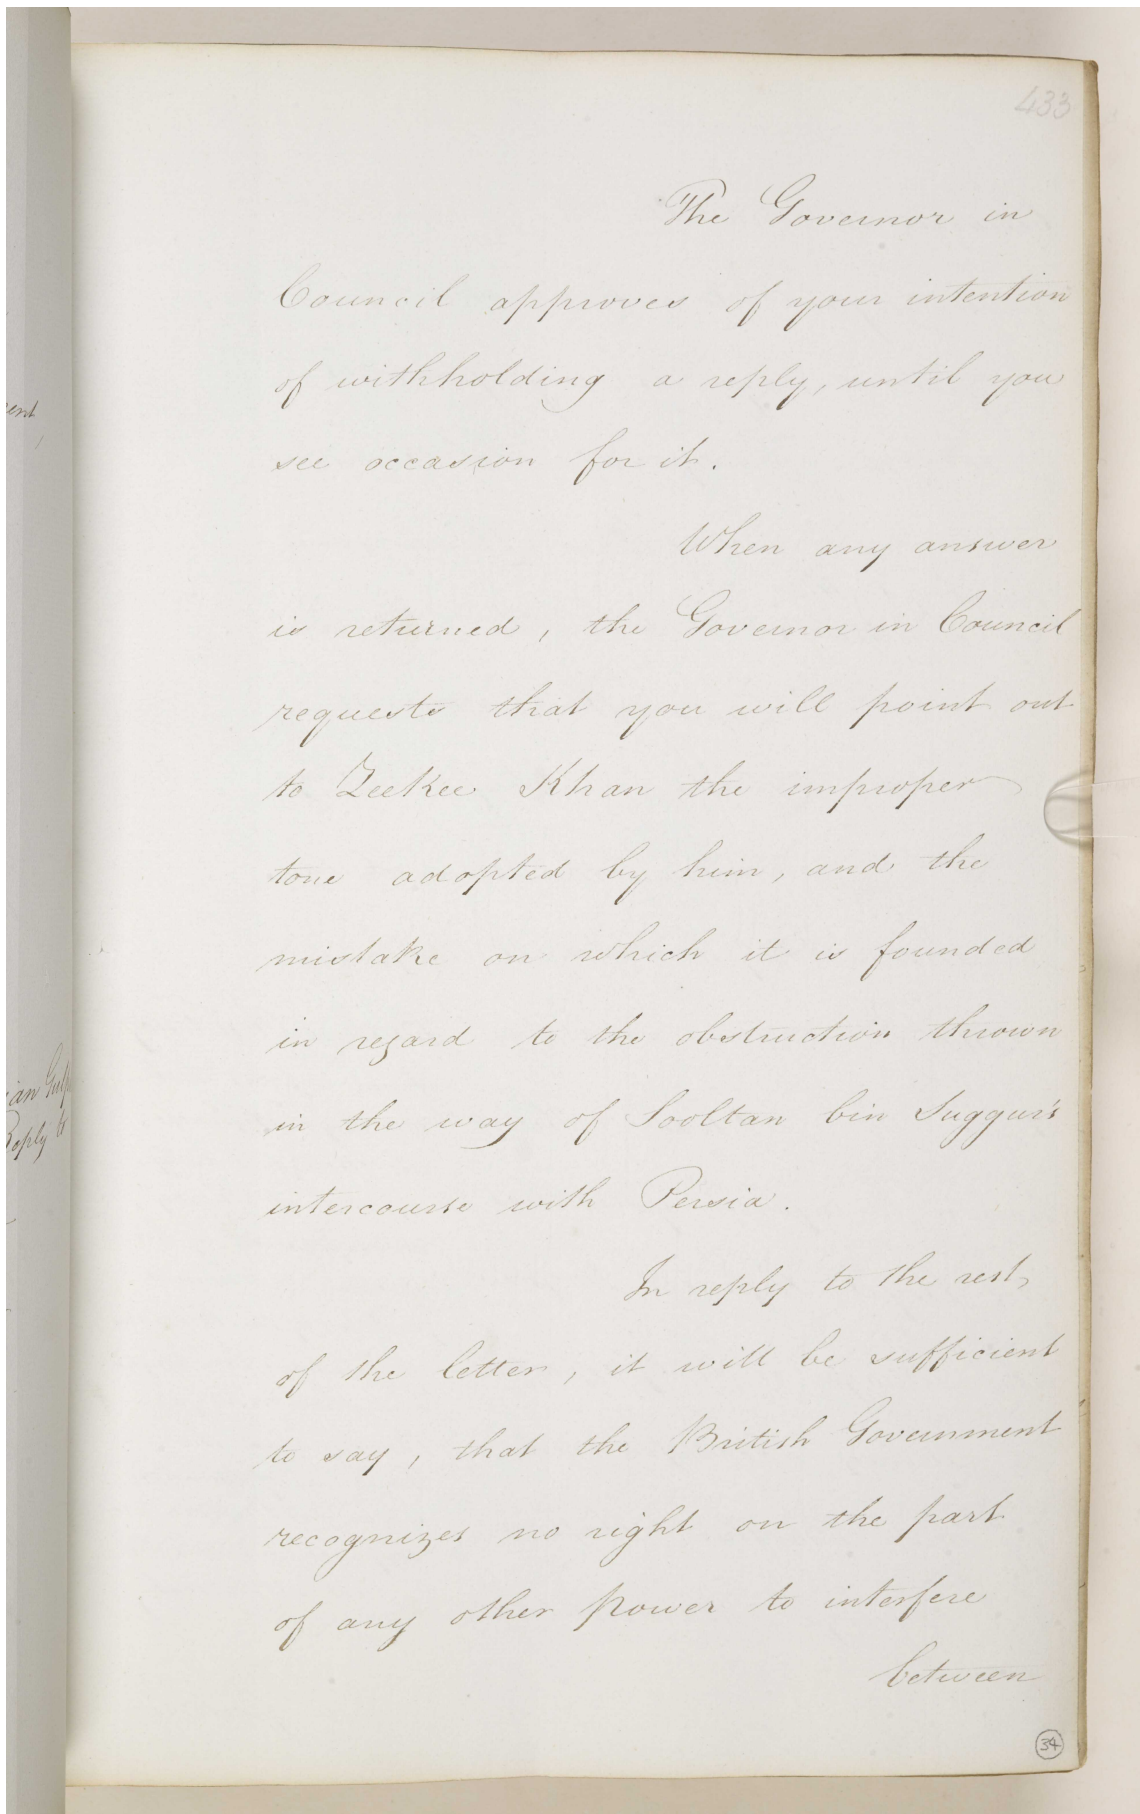 433
The Governor in
Council approves of your intention
of withholding a reply, until you
see occasion for it.
When any answer
is returned, the Governor in Council
requests that you will point out
to Zeekee Khan the improper
tone adopted by him, and the
mistake on which it is founded
in regard to the obstruction thrown
in the way of Sooltan bin Suggur's
intercourse with Persia.
In reply to the rest
of the letter, it will be sufficient
to say, that the British Government
recognizes no right on the part
of any other power to interfere
between
34